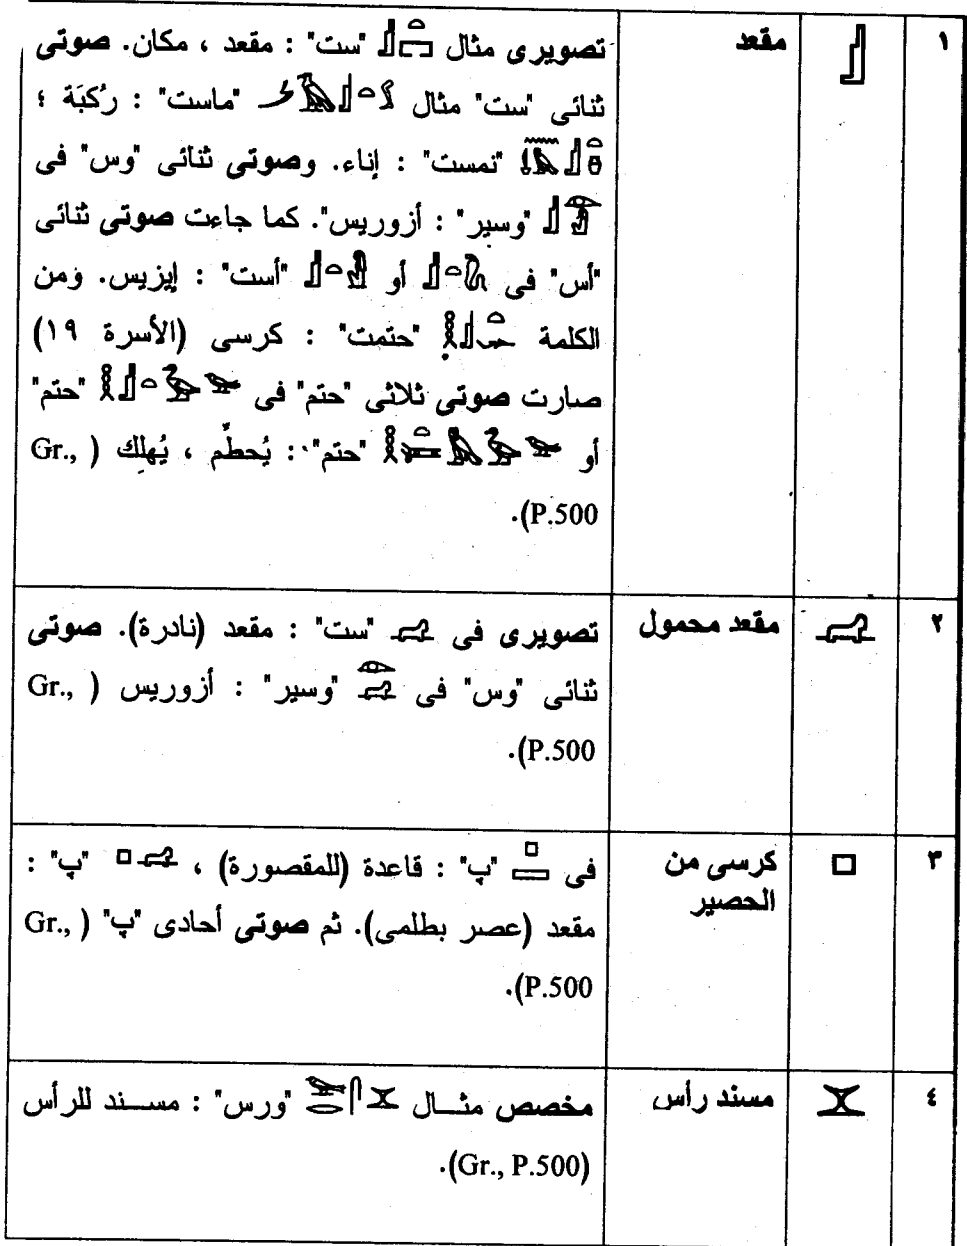 ١ 𓊨 مقعد تصويرى مثال "ست" : مقعد ، مكان. صوتى
ثنائى "ست" مثال "ماست" : رُكبَة ؛
"نمست" : إناء. وصوتى ثنائى "وس" فى
"وسير" : أزوريس". كما جاءت صوتى ثنائى
"أس" فى أو "أست" : إيزيس. ومن
الكلمة "حتمت" : كرسى (الأسرة ١٩)
صارت صوتى ثلاثى "حتم" فى "حتم"
أو "حتم": يُحطَّم ، يُهلِك (Gr.,
P.500).
٢ 𓊩 مقعد محمول تصويرى فى "ست" : مقعد (نادرة). صوتى
ثنائى "وس" فى "وسير" : أزوريس (Gr.,
P.500).
٣ 𓊪 كرسى من الحصير فى "پ" : قاعدة (للمقصورة) ، "پ" :
مقعد (عصر بطلمى). ثم صوتى أحادى "پ" (Gr.,
P.500).
٤ 𓊫 مسند رأس مخصص مثال "ورس" : مسند للرأس
(Gr., P.500).